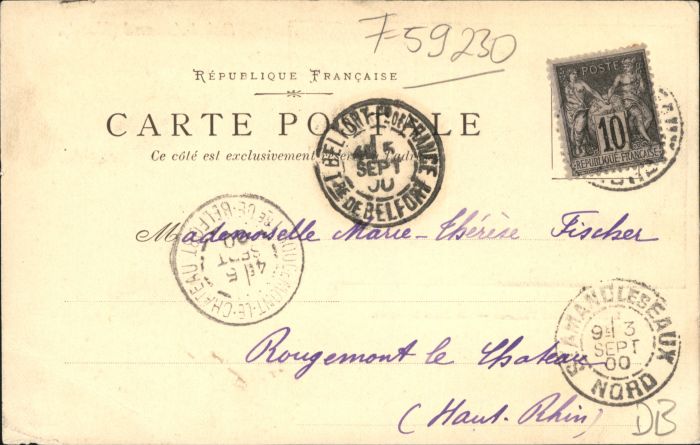 F-59230
RÉPUBLIQUE FRANÇAISE
CARTE POSTALE
Ce côté est exclusivement réservé à l'adresse
POSTE
10
REPUBLIQUE FRANÇAISE
BELFORT
5
SEPT
00
TRE DE BELFORT
Mademoiselle Marie-Thérèse Fischer
ROUGEMONT-LE-CHATEAU
5
SEPT
00
TRE DE BELFORT
ST AMAND LES EAUX
3
SEPT
00
NORD
Rougemont le Chateau
(Haut-Rhin)
DB